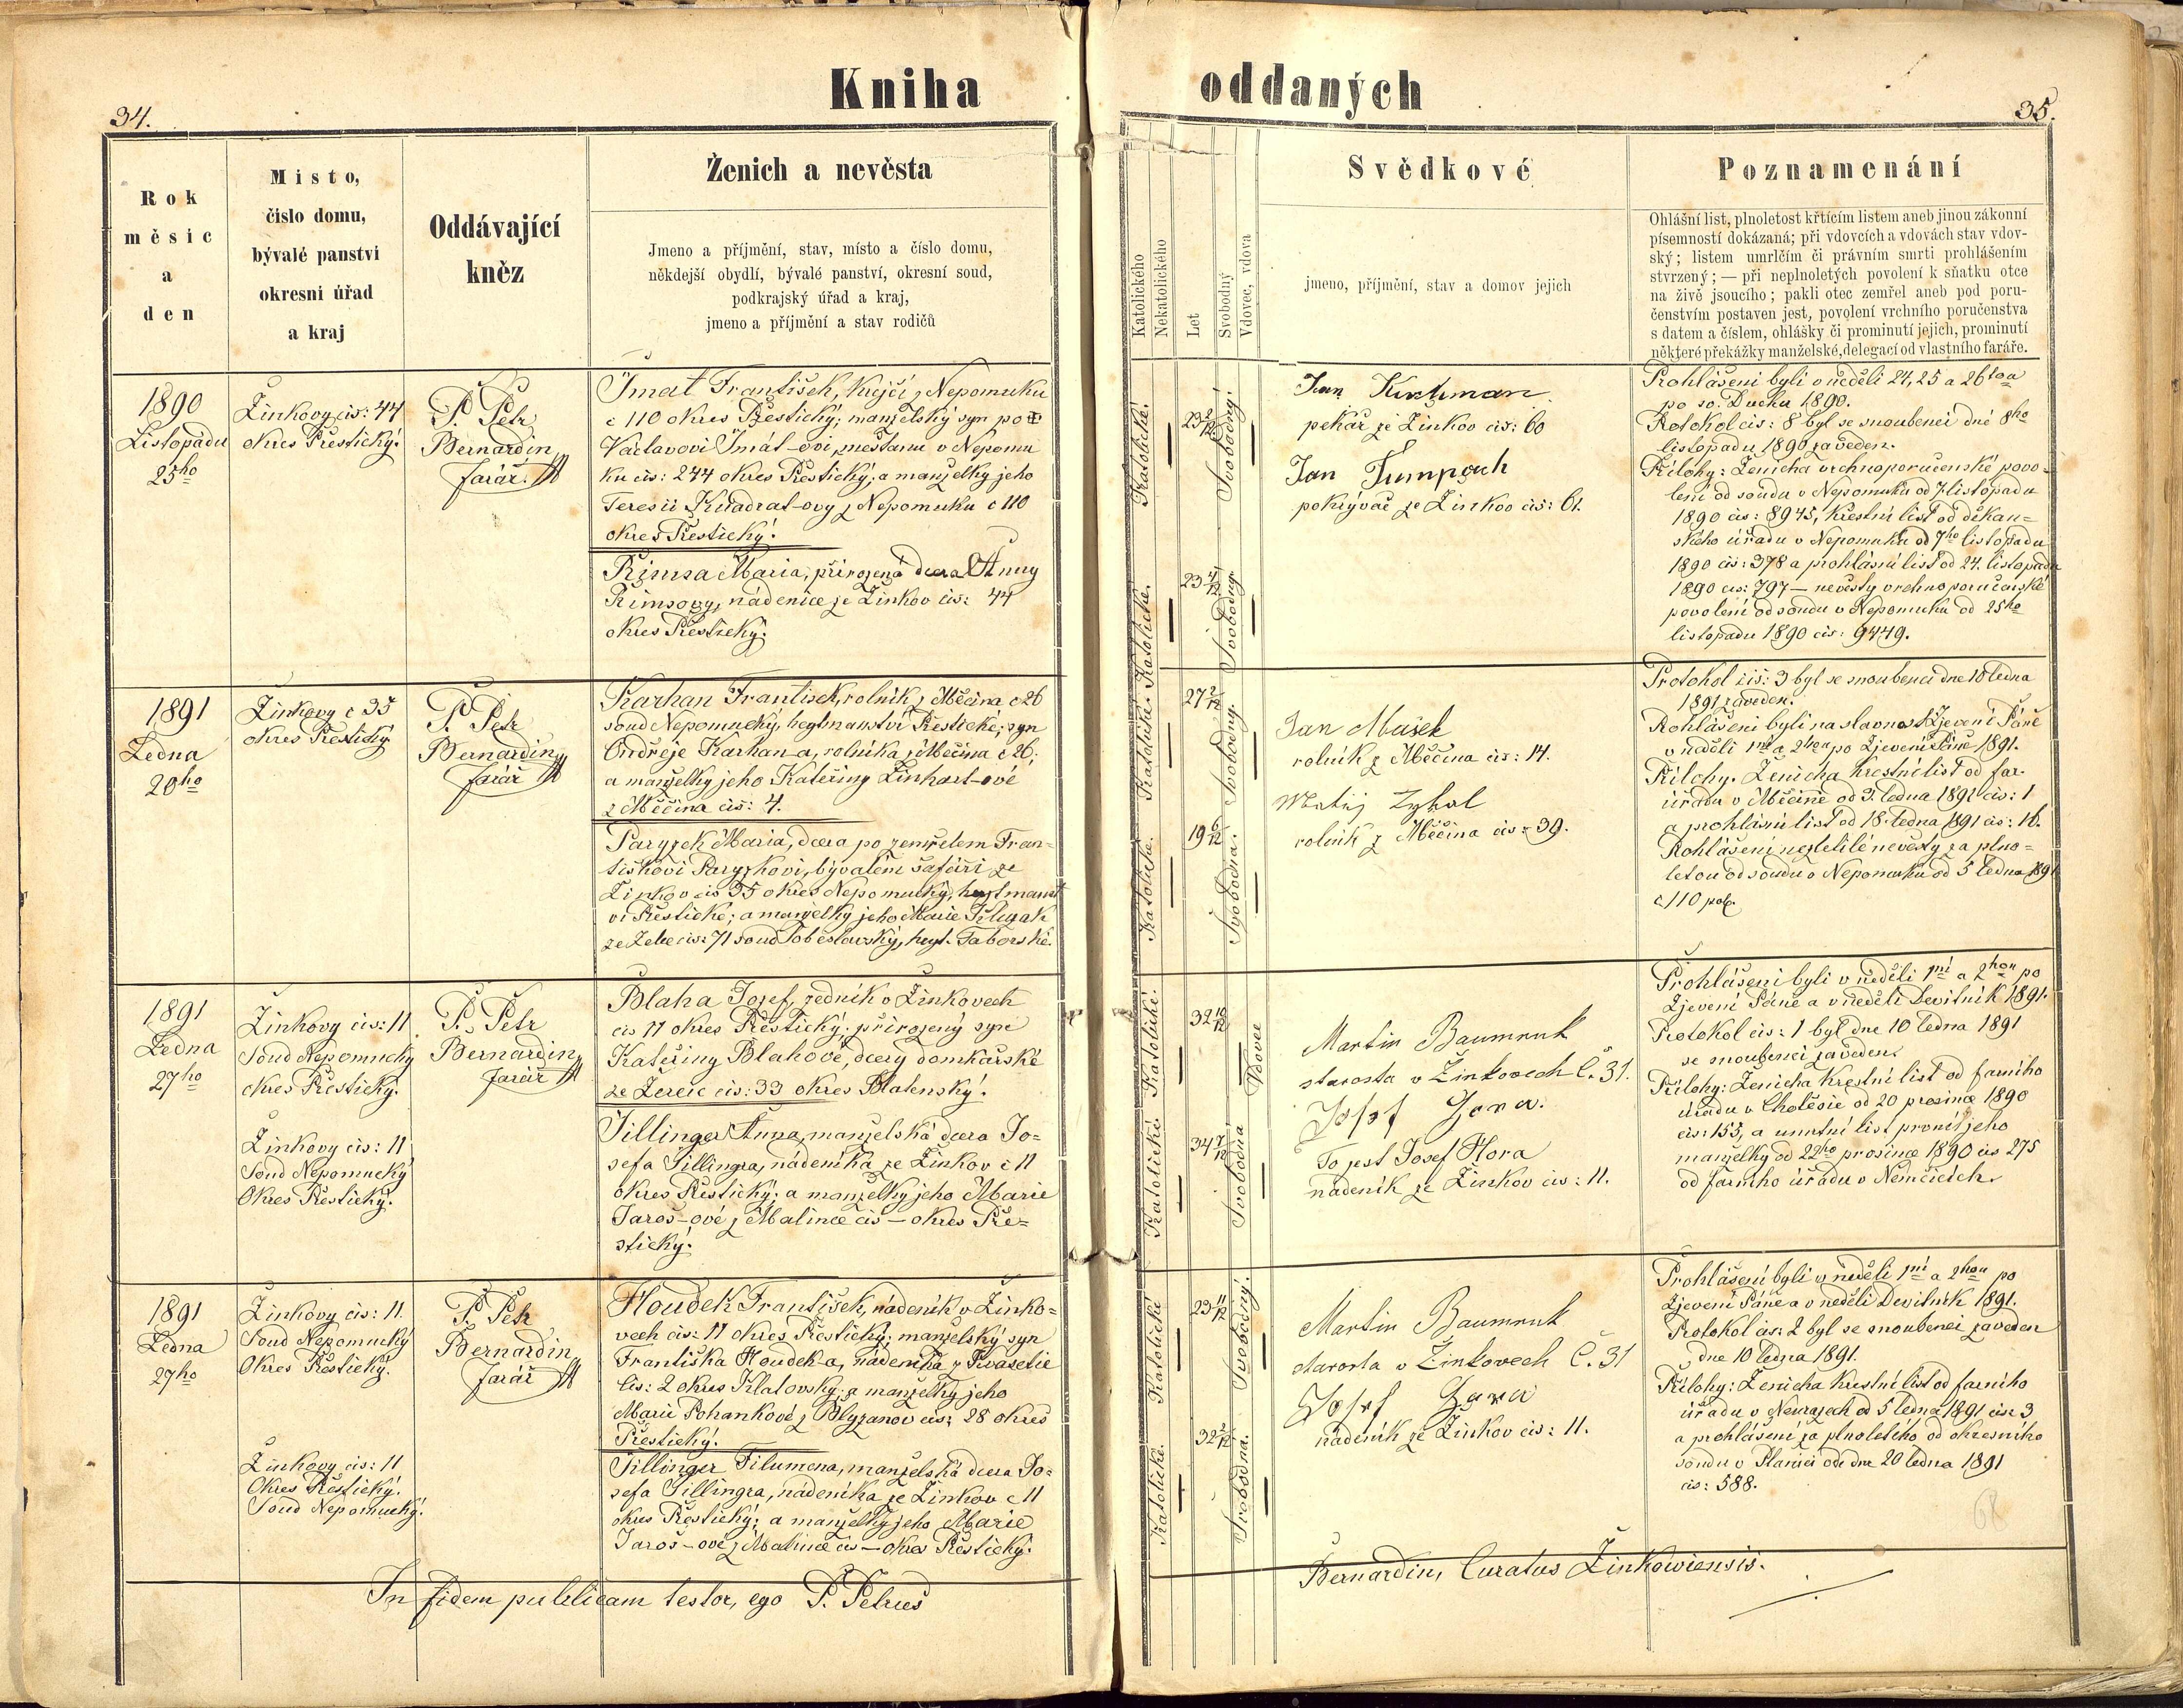 Kniha oddaných
34.
35.
Rok
měsíc
a
den
Misto,
číslo domu,
bývalé panství
okresní úřad
a kraj
Oddávající
kněz
Ženich a nevěsta
Jmeno a příjmění, stav, místo a číslo domu,
někdejší obydlí, bývalé panství, okresní soud,
podkrajský úřad a kraj,
jmeno a příjmění a stav rodičů
Katolického
Nekatolického
Let
Svobodný
Vdovec, vdova
Svědkové
jmeno, příjmění, stav a domov jejich
Poznamenání
Ohlášní list, plnoletost křtícím listem aneb jinou zákonní
písemností dokázaná; při vdovcích a vdovách stav vdov-
ský; listem umrlčím či právním smrti prohlášením
stvrzený; — při neplnoletých povolení k sňatku otce
na živě jsoucího; pakli otec zemřel aneb pod poru-
čenstvím postaven jest, povolení vrchního poručenstva
s datem a číslem, ohlášky či prominutí jejich, prominutí
některé překážky manželské, delegací od vlastního faráře.
1890
Listopadu
25ho
Žinkovy čis: 44
okres Přestický.
P. Petr
Bernardin
farář
František, krejčí z Nepomuku
č 110 okres Přestický; manželský syn po
Václavovi měšťanu v Nepomu
ku čis: 244 okres Přestický, a manželky jeho
Teresii Kvadrat-ovy z Nepomuku č 110
okres Přestický.
Řimsa Maria, přirozená dcera Anny
Řimsovy, nádenice ze Žinkov čis: 44
okres Přestický.
Katolické.
23 2/12
Svobodný.
Katolické.
23 4/12
Svobodny.
Jan
pekař ze Žinkov čis: 60
Jan Tumpach
pokrývač ze Žinkov čis: 61.
Prohlášeni byli v neděli 24, 25 a 26tou
po sv. Duchu 1890.
Protokol čis: 8 byl se snoubenci dne 8ho
listopadu 1890 zaveden.
Přílohy: Ženicha vrchnoporučenské povo-
lení od soudu v Nepomuku od 7 listopadu
1890 čis: 8945, křestní list od děkan=
ského úřadu v Nepomuku od 7ho listopadu
1890 čis: 378 a prohlásní list od 24. listopadu
1890 čis: 797 — nevěsty vrchnoporučenské
povolení od soudu v Nepomuku od 25ho
listopadu 1890 čis: 9449.
1891
Ledna
20ho
Žinkovy č 35
okres Přestický
P. Petr
Bernardin
farář
Karhan František, rolník z Měčína č 26
soud Nepomucký, hejtmanství Přestické; syn
Ondřeje Karhan-a, rolníka z Měčína č 26;
a manželky jeho Kateřiny Linhart-ové
z Měčína čis: 4.
Paryzek Maria, dcera po zemřelem Fran-
tiškovi Paryzkovi, bývalém šafáři ze
Žinkov čis 35 okres Nepomucký, hejtmanst
ví Přestické; a manželky jeho Marie
ze Želče čis: 71 soud Soběslavský, hejt. Táborské.
Katolické.
27 2/12
Svobodny.
Katolické.
19 6/12
Svobodna.
Jan Mašek
rolník z Měčína čis: 14.
Matěj Zykal
rolník z Měčína čis: 39.
Protokol čis: 3 byl se snoubenci dne 10 ledna
1891 zaveden.
Prohlášeni byli na slavnost Zjevení Páně
v neděli 1ní a 2hou po Zjevení Páně 1891.
Přílohy. Ženicha křestní list od far.
úřadu v Měčíně od 3. ledna 1891 čis: 1
a prohlásní list od 18. ledna 1891 čis: 16.
Prohlášení nezletilé nevěsty za plno=
letou od soudu v Nepomuku od 5 ledna 1891
č 110 pol.
1891
Ledna
27ho
Žinkovy čis: 11
Soud Nepomucky
okres Přestický.
Žinkovy čis: 11
Soud Nepomucký
Okres Přestický.
P. Petr
Bernardin
farář
Blaha Josef, zedník v Žinkovech
čis 11 okres Přestický; přirozený syn
Kateřiny Blahové, dcery domkářské
ze čis: 33 okres Blatenský.
Tillinger Anna, manželská dcera Jo=
sefa Tillingra, nádeníka ze Žinkov č 11
okres Přestický; a manželky jeho Marie
Jaroš-ové z Malince čis — okres Pře=
stický.
Katolické.
32 10/12
Vdovec
Katolické
34 7/12
Svobodná
Martin Baumruk
starosta v Žinkovech č. 31.
Josef Hora.
To jest Josef Hora
nádeník ze Žinkov čis: 11.
Prohlášeni byli v neděli 1ní a 2hou po
Zjevení Páně a v neděli Devítník 1891.
Protokol čis: 1 byl dne 10 ledna 1891
se snoubenci zaveden.
Přílohy: Ženicha křestní list od farního
úřadu v Chotěšíc od 20 prosince 1890
čis: 153, a umrtní list první jeho
manželky od 22ho prosince 1890 čis 275
od farního úřadu v Němčicích.
1891
Ledna
27ho
Žinkovy čis: 11.
Soud Nepomucký
Okres Přestický.
Žinkovy čis: 11
Okres Přestický.
Soud Nepomucký.
P. Petr
Bernardin
farář
Houdek František, nádeník v Žinko=
vech čis: 11 okres Přestický; manželský syn
Františka Houdek-a, nádeníka z Kvasetic
čis: 2 okres Klatovský; a manželky jeho
Marii Pohankové z čis: 28 okres
Přestický.
Tillinger Filumena, manželská dcera Jo=
sefa Tillingra, nádeníka ze Žinkov č 11
okres Přestický; a manželky jeho Marie
Jaroš-ové z Malince čis — okres Přestický.
Katolické
23 11/12
Svobodný.
Katolické.
32 2/12
Svobodná.
Martin Baumruk
starosta v Žinkovech č. 31
Josef Hora
nádeník ze Žinkov čis: 11.
Prohlášeni byli v neděli 1ní a 2hou po
Zjevení Páně a v neděli Devítník 1891.
Protokol čis: 2 byl se snoubenci zaveden
dne 10 ledna 1891.
Přílohy: Ženicha křestní list od farního
úřadu v Neurazech od 5 ledna 1891 čis: 3
a prohlášení za plnoletého od okresního
soudu v Planici ode dne 20 ledna 1891
čis: 588.
68
In fidem publicam testor, ego P. Petrus Bernardin, Curatus Žinkowiensis.